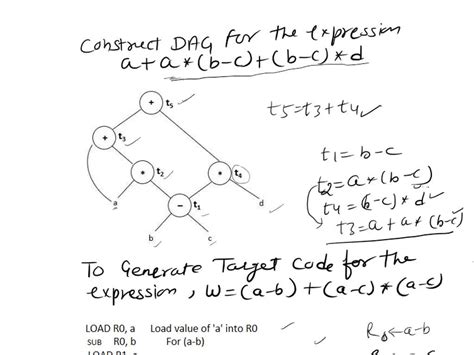 Construct DAG for the expression
a+a*(b-c)+(b-c)*d
+ t5
t5=t3+t4
+ t3
t1=b-c
* t2
* t4
t2=a*(b-c)
t4=(b-c)*d
a
- t1
d
t3=a+a*(b-c)
b
c
To Generate Target Code for the
expression, W=(a-b)+(a-c)*(a-c)
LOAD R0, a Load value of 'a' into R0
SUB R0, b For (a-b)
R0←a-b